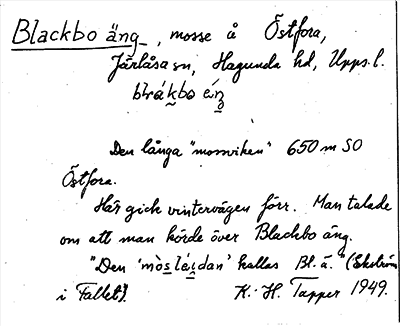 Blackbo äng, mosse å Östfora,
Järlåsa sn, Hagunda hd, Upps. l.
blrákbo éiŋ
Den långa "mossviken" 650 m SO
Östfora.
Här gick vintervägen förr. Man talade
om att man körde över Blackbo äng.
"Den 'mòsláŋdan' kallas Bl. ä." (Ekström
i Fallet).
K.-H. Tapper 1949.